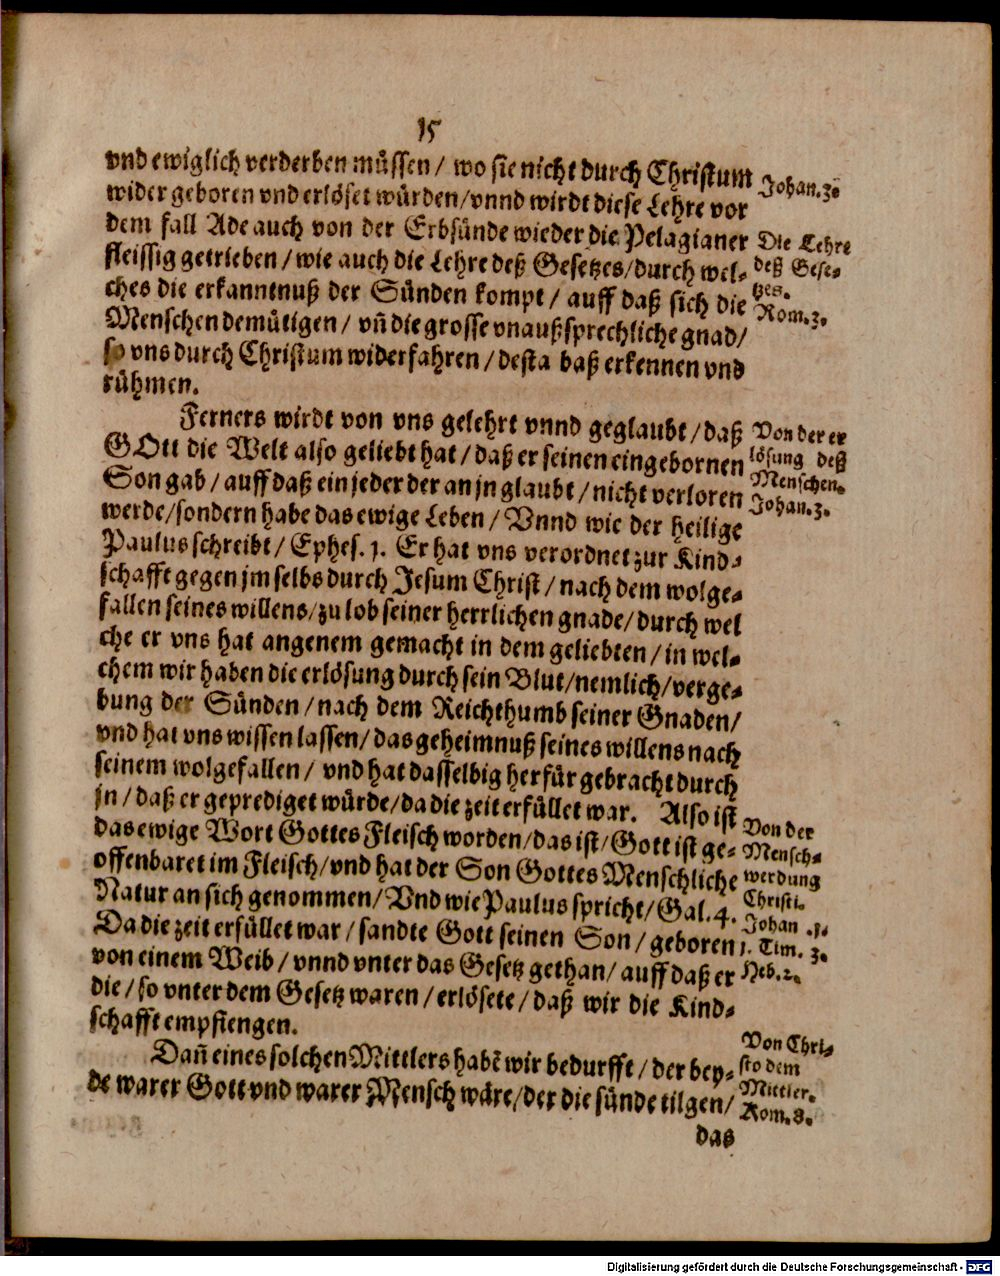 15
vnd ewiglich verderben müssen / wo sie nicht durch Christum
wider geboren vnd erlöset würden / vnnd wirdt diese Lehre vor
dem fall Ade auch von der Erbsünde wieder die Pelagianer
fleissig getrieben / wie auch die Lehre deß Gesetzes / durch wel-
ches die erkanntnuß der Sünden kompt / auff daß sich die
Menschen demütigen / vñ die grosse vnaußsprechliche gnad /
so vns durch Christum widerfahren / desta baß erkennen vnd
rühmen.
Johan.3.
Die Lehre
deß Gese-
tzes.
Rom.3.
Ferners wirdt von vns gelehrt vnnd geglaubt / daß
GOtt die Welt also geliebt hat / daß er seinen eingebornen
Son gab / auff daß ein jeder der an jn glaubt / nicht verloren
werde / sondern habe das ewige Leben / Vnnd wie der heilige
Paulus schreibt / Ephes. 1. Er hat vns verordnet zur Kind-
schafft gegen jm selbs durch Jesum Christ / nach dem wolge-
fallen seines willens / zu lob seiner herrlichen gnade / durch wel
che er vns hat angenem gemacht in dem geliebten / in wel-
chem wir haben die erlösung durch sein Blut / nemlich / verge-
bung der Sünden / nach dem Reichthumb seiner Gnaden /
vnd hat vns wissen lassen / das geheimnuß seines willens nach
seinem wolgefallen / vnd hat dasselbig herfür gebracht durch
jn / daß er geprediget würde / da die zeit erfüllet war. Also ist
das ewige Wort Gottes Fleisch worden / das ist / Gott ist ge-
offenbaret im Fleisch / vnd hat der Son Gottes Menschliche
Natur an sich genommen / Vnd wie Paulus spricht / Gal. 4.
Da die zeit erfüllet war / sandte Gott seinen Son / geboren
von einem Weib / vnnd vnter das Gesetz gethan / auff daß er
die / so vnter dem Gesetz waren / erlösete / daß wir die Kind-
schafft empfiengen.
Von der er
lösung deß
Menschen.
Johan.3.
Von der
Mensch-
werdung
Christi.
Johan .1.
1. Tim. 3.
Heb.2.
Dañ eines solchen Mittlers habẽ wir bedurfft / der bey-
de warer Gott vnd warer Mensch wäre / der die sünde tilgen /
das
Von Chri-
sto dem
Mittler.
Rom.8.
Digitalisierung gefördert durch die Deutsche Forschungsgemeinschaft - DFG